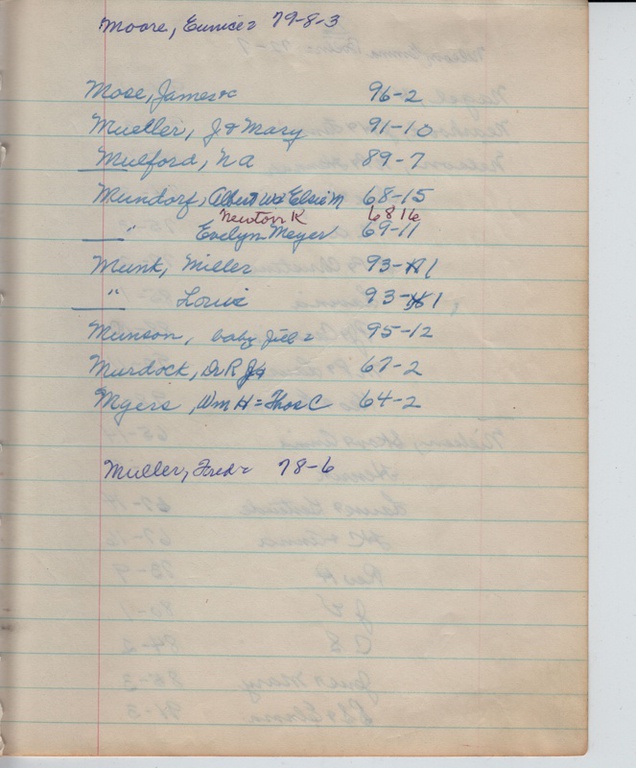 Moore, Eunice = 79-8-3
Mose, James
96-2
Mueller, J & Mary 91-10
Mulford, N A 89-7
Mundorf, Albert W & Elsie M 68-15
Newton K 68 16
" Evelyn Meyer 69-11
Munk, Miller 93-1
" Louis 93-1
Munson, baby Jill = 95-12
Murdock, Dr R J 67-2
Myers, Wm H = Thos C 64-2
Muller, Fred = 78-6